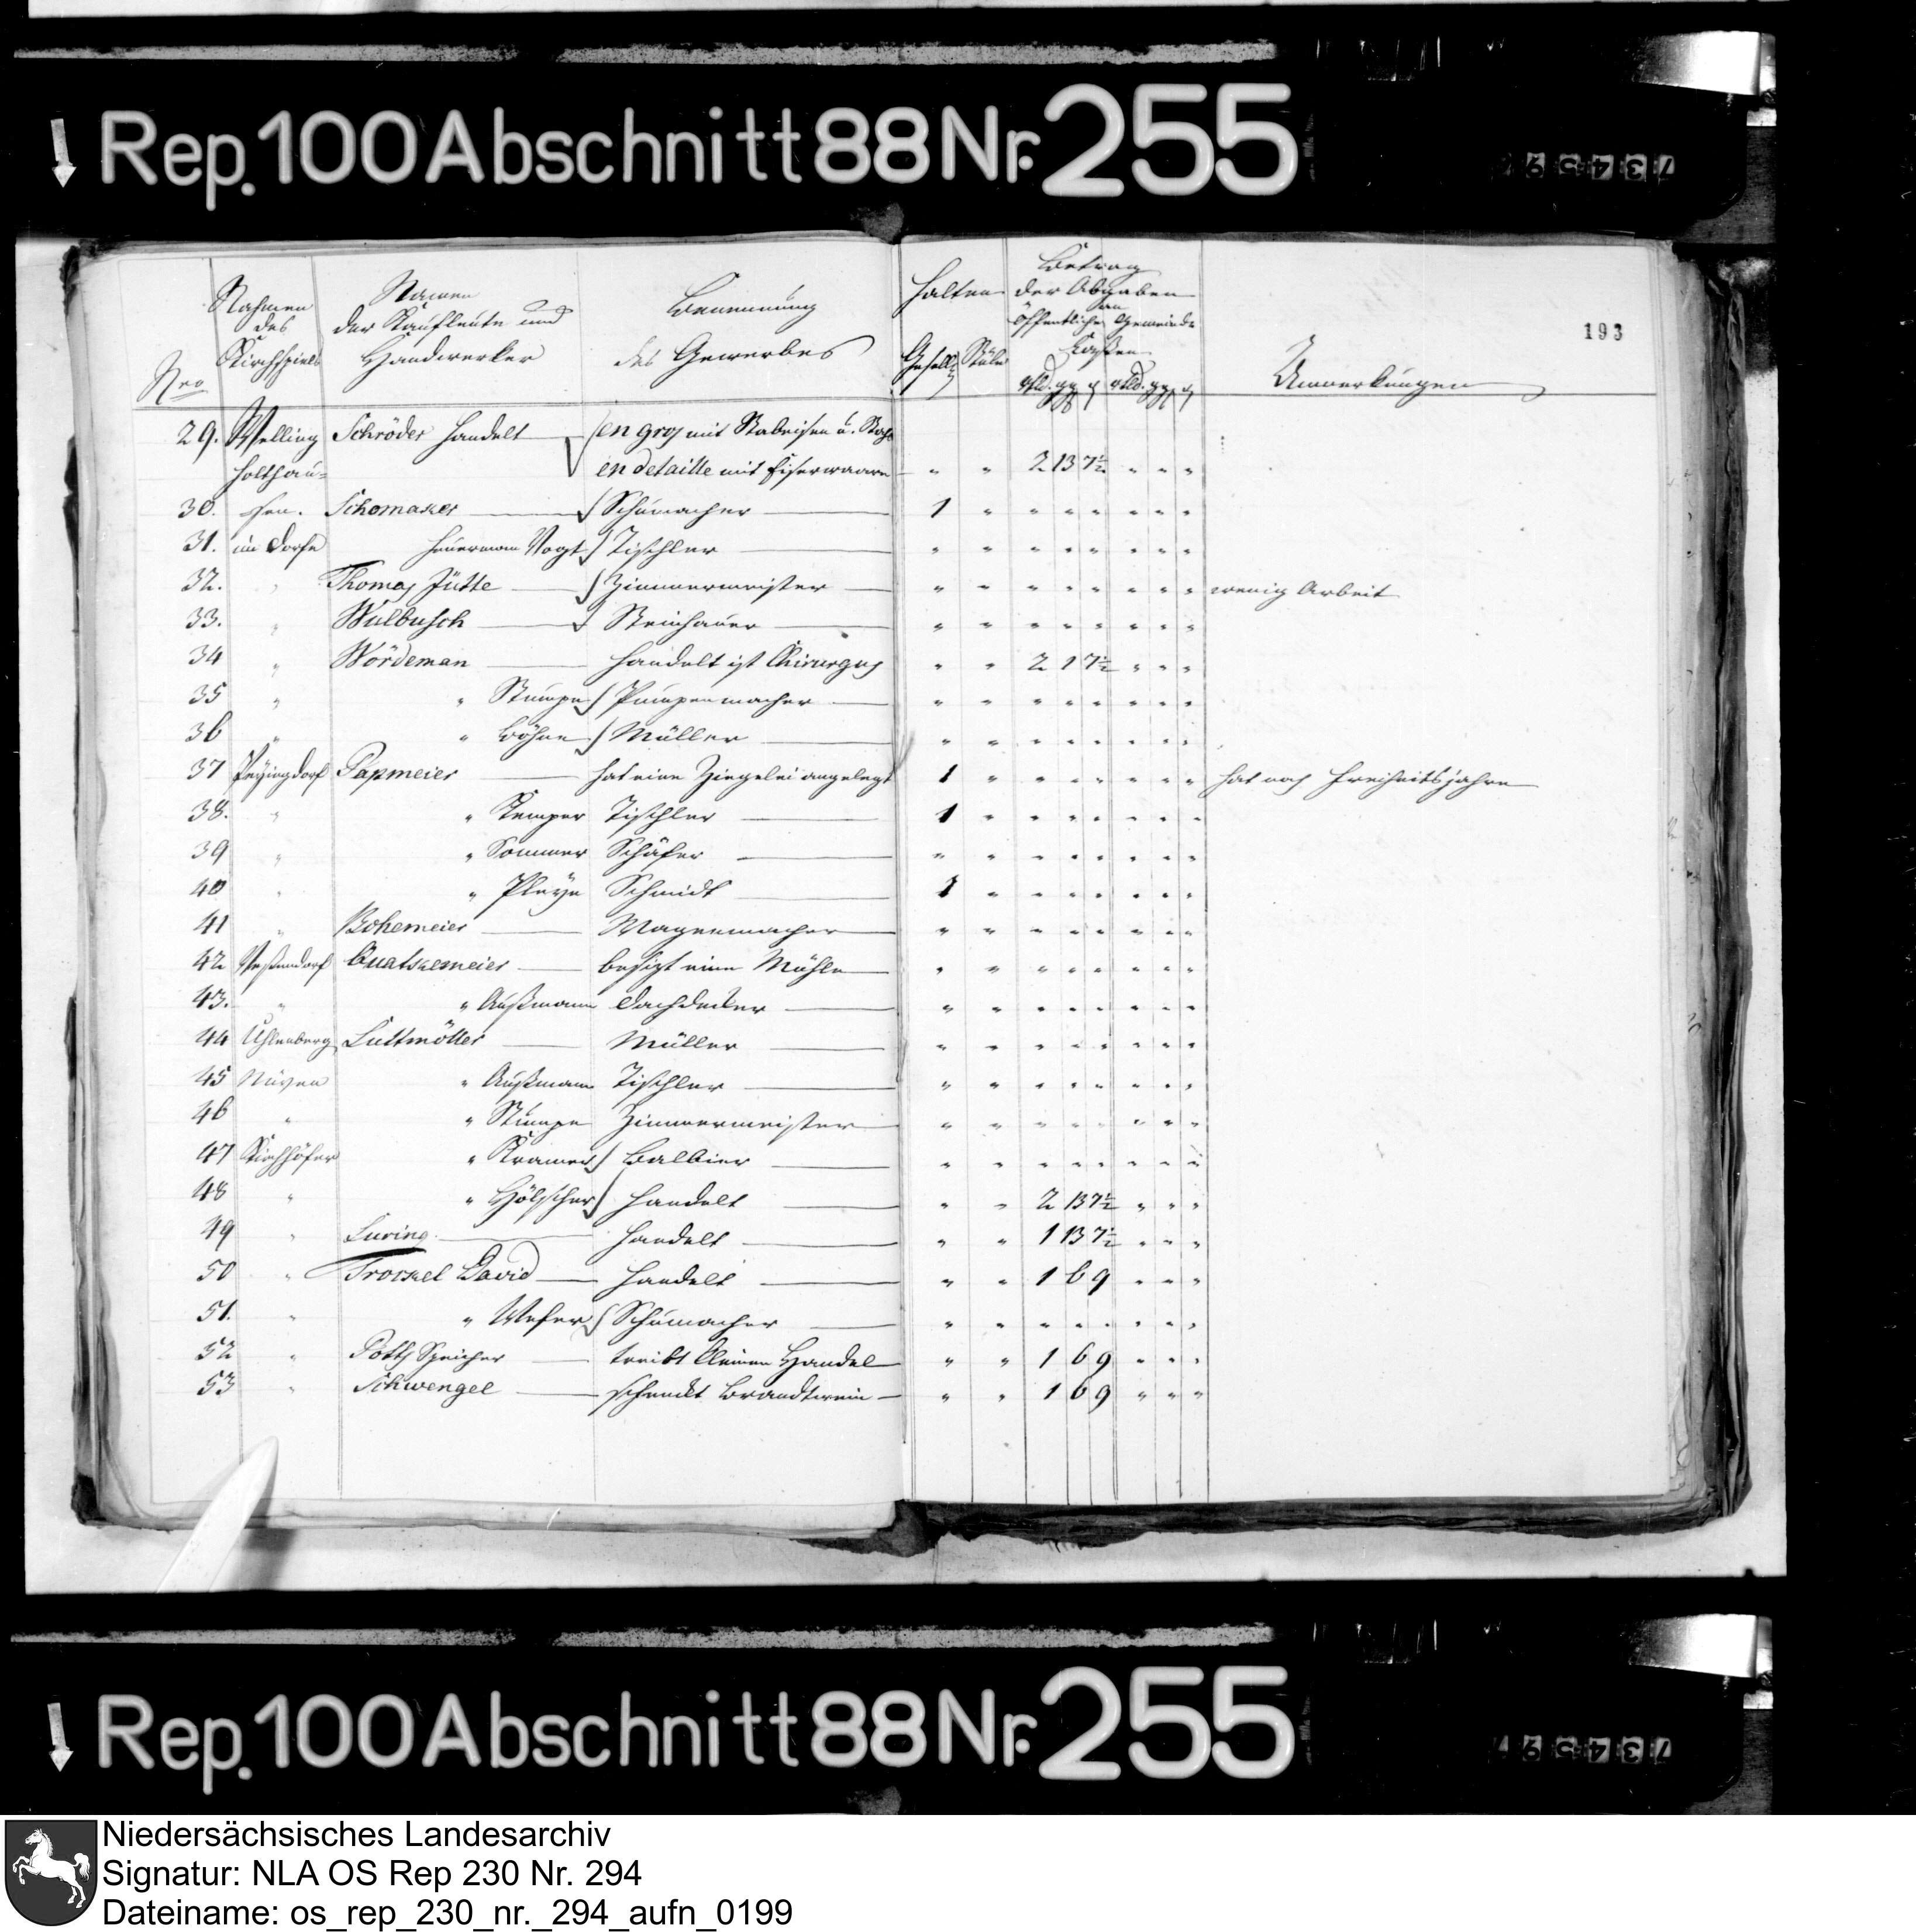 Rep. 100 Abschnitt 88 Nr. 255
193
Nro
Nahmen des Kirchspiels
Namen der Kaufleute und Handwerker
Benennung des Gewerbes
halten
Gesellen Stüle
Betrag der Abgaben an öffentliche Gemeinde Kassen
rtld. gg ₰ rtld. gg ₰
Anmerkungen
29. Welling Schröder handelt en gros mit Stabeisen u. Stahl
holthau= en detaille mit Eisenwaaren " " 2 13 7½ " " "
30. sen. Schomaker Schumacher 1 " " " " " " "
31. im Dorfe Heuermann Vogt Tischler " " " " " " " "
32. " Thomas Jütte Zimmermeister " " " " " " " " wenig Arbeit
33. " Wulbusch Steinhauer " " " " " " " "
34 " Wördeman handelt ist Chirurgus " " 2 1 7½ " " "
35 " " Stumpe Pumpenmacher " " " " " " " "
36 " " Böhne Müller " " " " " " " "
37 Papmeier hat eine Ziegelei angelegt 1 " " " " " " " hat noch Freiheitsjahre
38. " " Kemper Tischler 1 " " " " " " "
39 " " Sommer Schäfer " " " " " " " "
40 " " Pleye Schmidt 1 " " " " " " "
41 " Bohemeier Wagenmacher " " " " " " " "
42 Westendorf Quatkemeier besizt eine Mühle " " " " " " " "
43. " " Außmann Dachdecker " " " " " " " "
44 Uhlenberg Luttmöller Müller " " " " " " " "
45 " Außmann Tischler " " " " " " " "
46 " " Stumpe Zimmermeister " " " " " " " "
47 Kirchhöfer " Kramer Balbier " " " " " " " "
48 " " Hölscher handelt " " 2 13 7½ " " "
49 " Luring handelt " " 1 13 7½ " " "
50 " Troskel David handelt " " 1 6 9 " " "
51. " " Wefer Schumacher " " " " " " " "
52 " Potts Speicher treibt kleinen Handel " " 1 6 9 " " "
53 " Schwengel schenckt Brandtwein " " 1 6 9 " " "
Rep. 100 Abschnitt 88 Nr. 255
Niedersächsisches Landesarchiv
Signatur: NLA OS Rep 230 Nr. 294
Dateiname: os_rep_230_nr._294_aufn_0199